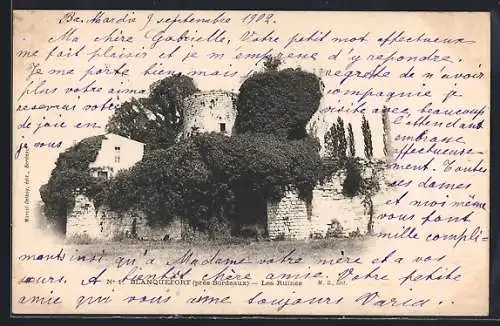 Bx. Mardi 9 septembre 1902.
Ma chère Gabrielle, Votre petit mot affectueux
me fait plaisir et je m'empresse d'y répondre.
Je me porte bien mais regrette de n'avoir
plus votre compagnie. Je
reserverai votre visite avec beaucoup
de joie en l'attendant
je vous embrasse
affectueuse
ment. Toutes
ces dames
et moi même
vous font
mille compli-
ments ainsi qu'a Mademoiselle votre mère et à vos
sœurs. A bientôt chère amie. Votre petite
amie qui vous aime toujours
Marcel Delboy, édit., Bordeaux
BLANQUEFORT (près Bordeaux) — Les Ruines
M. D., édit.